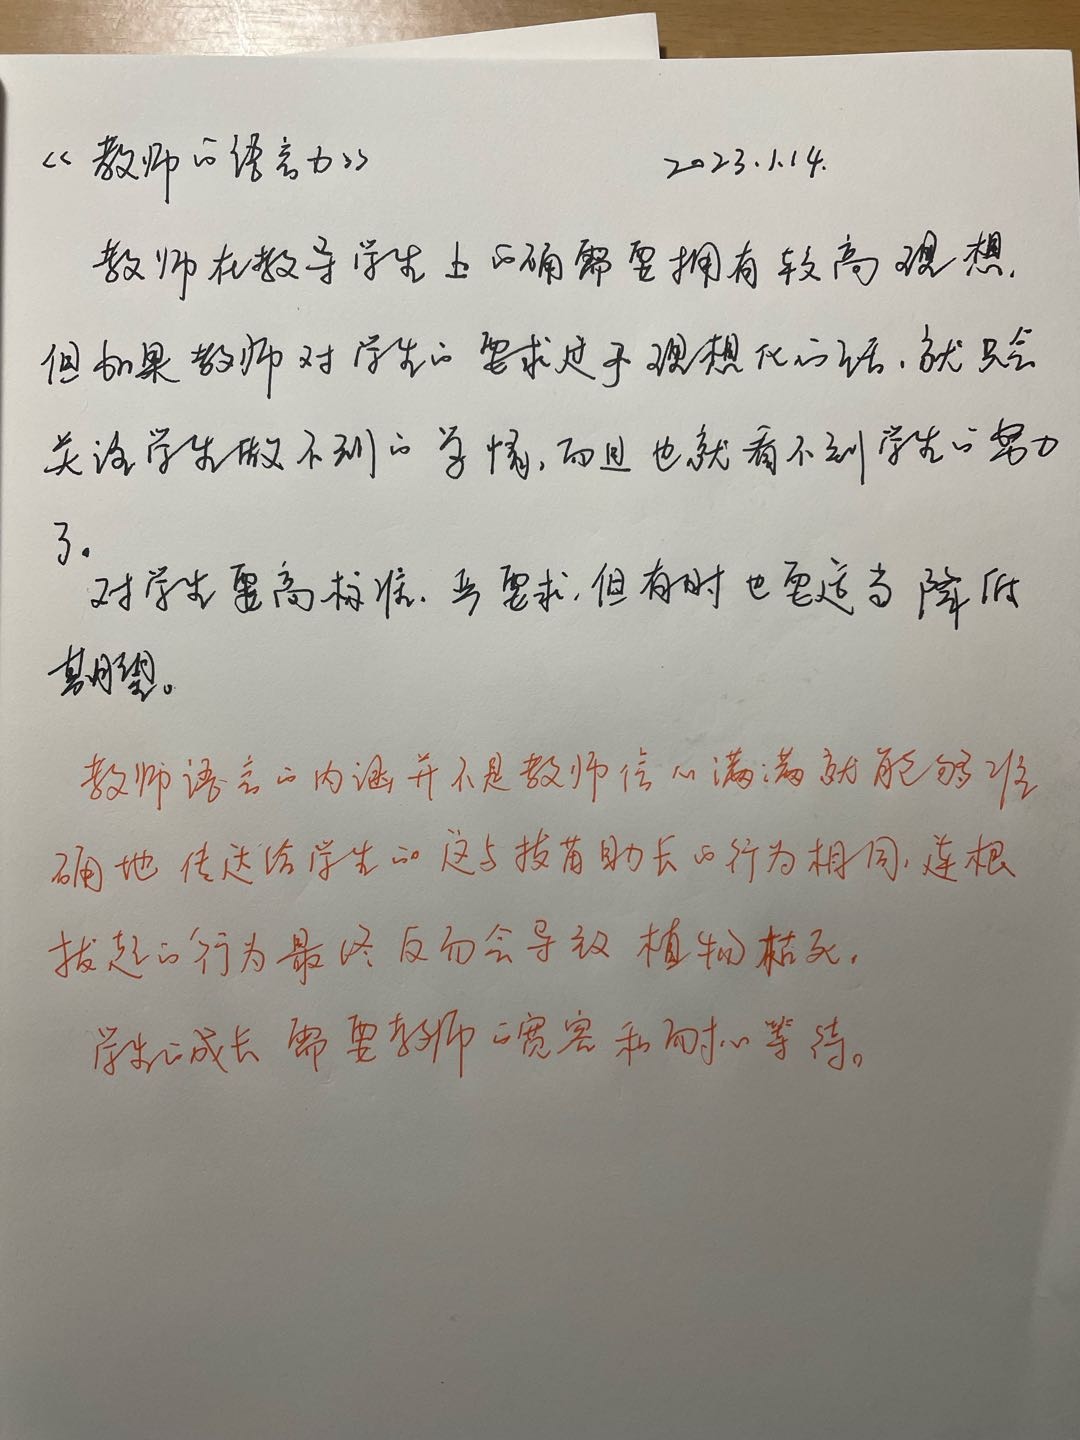 《教师的语言力》 2023.1.14.
教师在教导学生上的确需要拥有较高理想.
但如果教师对学生的要求过于理想化的话,就只会
关注学生做不到的事情,而且也就看不到学生的努力
了.
对学生要高标准、严要求,但有时也要适当降低
期望。
教师语言的内涵并不是教师信心满满就能够准
确地传达给学生的 这与拔苗助长的行为相同,连根
拔起的行为最终反而会导致植物枯死.
学生的成长需要教师的宽容和耐心等待。